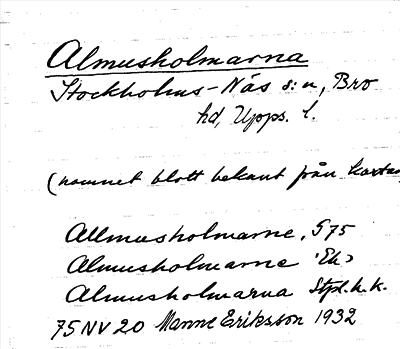 Almusholmarna
Stockholms-Näs s:n, Bro
hd, Upps. l.
(namnet blott bekant från kartan
Allmusholmarne, G75
Almusholmarne 'Ek>
Almusholmarna Stpl. h. k.
75 NV 20 Manne Eriksson 1932